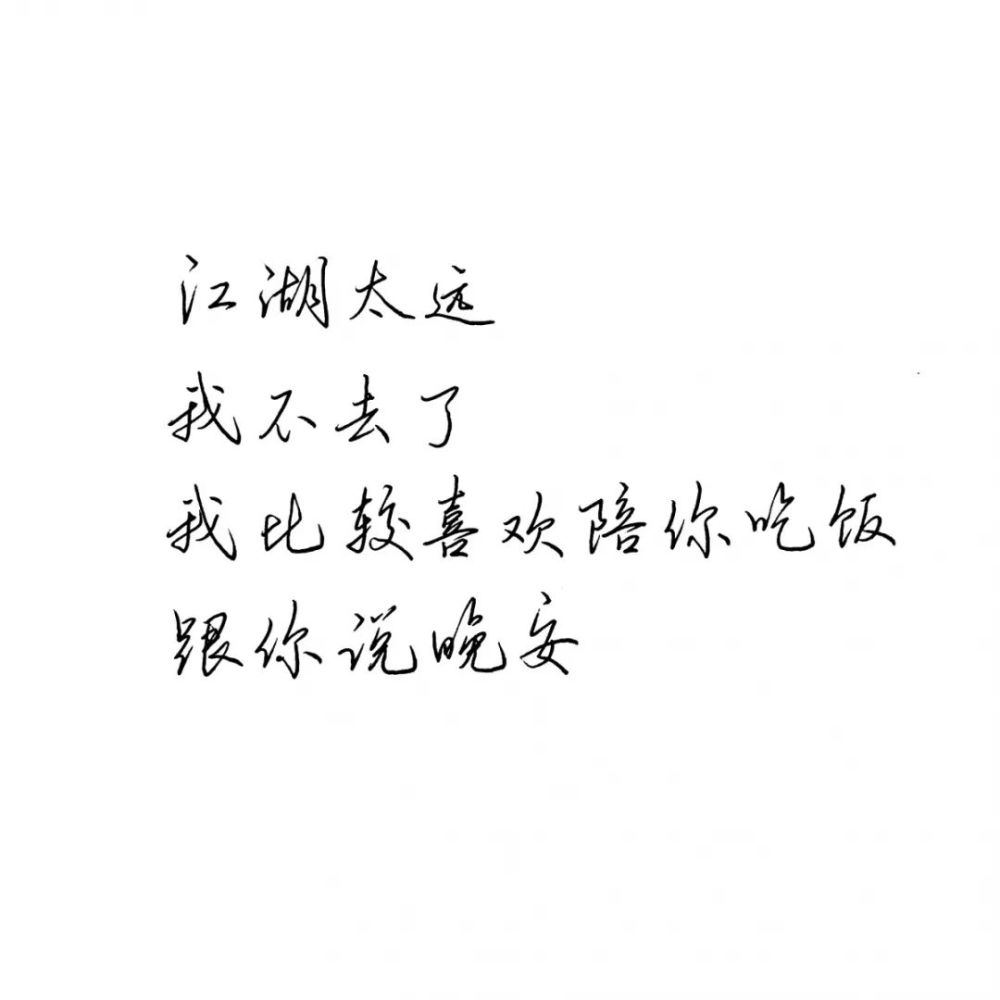 江湖太远
我不去了
我比较喜欢陪你吃饭
跟你说晚安